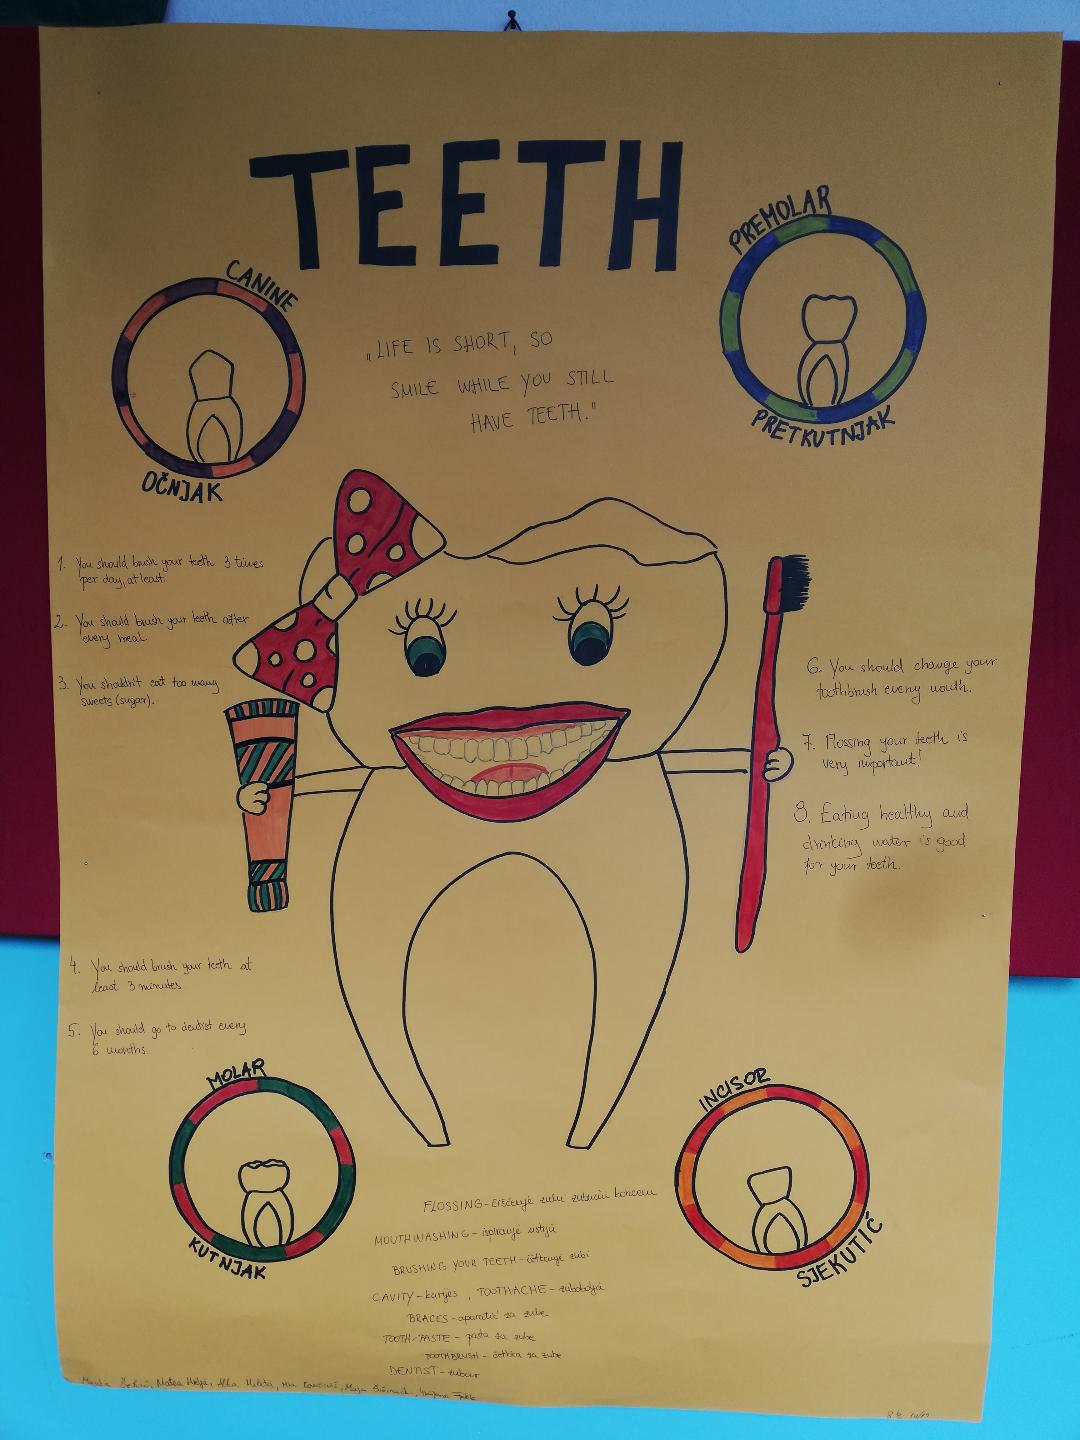 TEETH
PREMOLAR
CANINE
„LIFE IS SHORT, SO
SMILE WHILE YOU STILL
HAVE TEETH."
PRETKUTNJAK
OČNJAK
1. You should brush your teeth 3 times
per day, at least.
2. You should brush your teeth after
every meal.
3. You shouldn't eat too many
sweets (sugar).
4. You should brush your teeth at
least 3 minutes.
5. You should go to dentist every
6 months.
6. You should change your
toothbrush every month.
7. Flossing your teeth is
very important!
8. Eating healthy and
drinking water is good
for your teeth.
MOLAR
KUTNJAK
INCISOR
SJEKUTIĆ
FLOSSING - čišćenje zubi zubnim koncem
MOUTHWASHING - ispiranje ustiju
BRUSHING YOUR TEETH - četkanje zubi
CAVITY - karijes , TOOTHACHE - zubobolja
BRACES - aparatić za zube
TOOTH-PASTE - pasta za zube
TOOTHBRUSH - četkica za zube
DENTIST - zubar
Matea Alba Milita, Maja